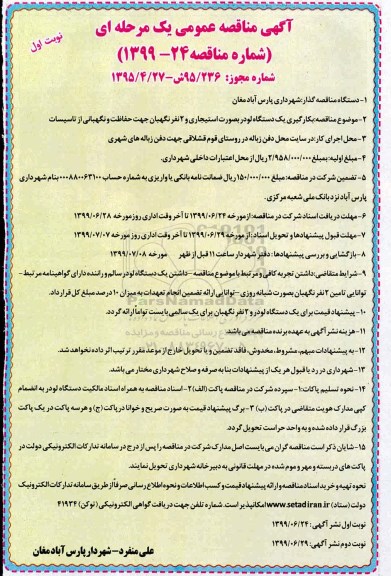 نوبت اول
آگهی مناقصه عمومی یک مرحله ای
(شماره مناقصه ۲۴- ۱۳۹۹)
شماره مجوز: ۹۵/۲۳۶ش-۱۳۹۵/۴/۲۷
۱-دستگاه مناقصه گذار:شهرداری پارس آبادمغان
۲-موضوع مناقصه:بکارگیری یک دستگاه لودر بصورت استیجاری و ۲نفر نگهبان جهت حفاظت و نگهبانی از تاسیسات
۳-محل اجرای کار:در سایت محل دفن زباله در روستای قوم قشلاقی جهت دفن زباله های شهری
۴-مبلغ اولیه:بمبلغ ۲/۹۵۸/۰۰۰/۰۰۰ ریال از محل اعتبارات داخلی شهرداری.
۵-تضمین شرکت در مناقصه: مبلغ ۱۵۰/۰۰۰/۰۰۰ ریال ضمانت نامه بانکی یا واریزی به شماره حساب ۰۰۰۸۸۰۰۶۳۱۰۰ بنام شهرداری
پارس آباد نزد بانک ملی شعبه مرکزی.
۶-مهلت دریافت اسناد شرکت در مناقصه:از مورخه ۱۳۹۹/۰۶/۲۴ تا آخر وقت اداری روز مورخه ۱۳۹۹/۰۶/۲۸
۷-مهلت قبول پیشنهادها و تحویل اسناد :از مورخه ۱۳۹۹/۰۶/۲۹ تا آخر وقت اداری روز مورخه ۱۳۹۹/۰۷/۰۷
۸-بازگشایی و بررسی پیشنهادها: دفتر شهردار ساعت ۱۱ قبل از ظهر مورخه ۱۳۹۹/۰۷/۰۸
۹-شرایط متقاضی:داشتن تجربه کافی و مرتبط با موضوع مناقصه -داشتن یک دستگاه لودر سالم و راننده دارای گواهینامه مرتبط-
توانایی تامین ۲نفر نگهبان بصورت شبانه روزی-توانایی ارائه تضمین انجام تعهدات به میزان ۱۰ درصد مبلغ کل قرارداد.
۱۰-پیشنهاد قیمت برای یک دستگاه لودر و ۲نفر نگهبان برای یک سال می بایست تواما ارائه گردد.
۱۱-هزینه نشر آگهی به عهده برنده مناقصه می باشد.
۱۲-به پیشنهادات مبهم، مشروط، مخدوش، فاقد تضمین و یا تحویل خارج از موعد مقرر ترتیب اثر داده نخواهد شد.
۱۳-شهرداری در رد یا قبول هر یک از پیشنهادات بنا به صرفه و صلاح شهرداری مختار می باشد.
۱۴-نحوه تسلیم پاکات:۱-سپرده شرکت در مناقصه پاکت (الف)۲-اسناد مناقصه به همراه اسناد مالکیت دستگاه لودر به انضمام
کپی مدارک هویت متقاضی در پاکت(ب) ۳-برگ پیشنهاد قیمت به صورت صریح و خوانا در پاکت (ج) و هر سه پاکت در یک پاکت
بزرگ قرار داده شده و به واحد حراست تحویل گردد.
۱۵-شایان ذکر است مناقصه گران می بایست اصل مدارک شرکت در مناقصه را پس از درج در سامانه تدارکات الکترونیکی دولت در
پاکت های دربسته و مهر و موم شده در مهلت قانونی به دبیرخانه شهرداری تحویل نمایند.
نحوه تهیه و خرید اسناد مناقصه و ارائه پیشنهاد قیمت و کسب اطلاعات و نحوه اطلاع رسانی صرفاً از طریق سامانه تدارکات الکترونیک
دولت (ستاد) www.setadiran.ir امکانپذیر است. شماره تلفن جهت دریافت گواهی الکترونیکی (توکن) ۴۱۹۳۴
نوبت اول نشر آگهی: ۱۳۹۹/۰۶/۲۴
نوبت دوم نشر آگهی: ۱۳۹۹/۰۶/۲۹
علی منفرد-شهردار پارس آبادمغان